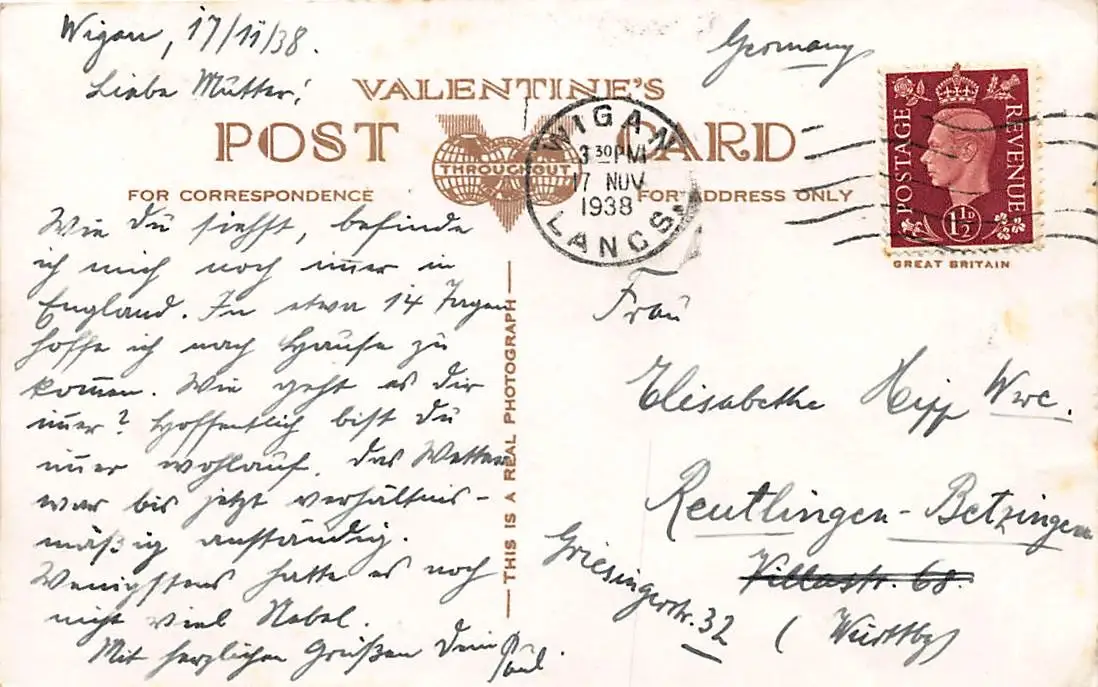 Wigan, 17/11/38.
Liebe Mutter!
Germany
VALENTINE'S
POST CARD
THROUGHOUT
FOR CORRESPONDENCE
FOR ADDRESS ONLY
WIGAN
3 30 PM
17 NOV
1938
LANCS.
POSTAGE
REVENUE
1½D
GREAT BRITAIN
Wie Du siehst, befinde
ich mich noch im̅er in
England. In etwa 14 Tagen
hoffe ich nach Hause zu
kom̅en. Wie geht es Dir
im̅er? Hoffentlich bist Du
im̅er wohlauf. Das Wetter
war bis jetzt verhältnis-
mäßig anständig.
Wenigstens hatte es noch
nicht viel Nebel.
Mit herzlichen Grüßen Dein
Paul.
THIS IS A REAL PHOTOGRAPH
Frau
Elisabethe Hipp Wwe.
Reutlingen-Betzingen
Villastr. 68.
Griesingerstr. 32
(Württbg)